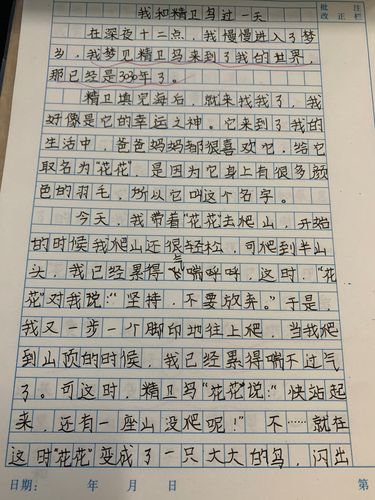 批 注
改 正 栏
我和精卫鸟过一天
在深夜十二点,我慢慢进入了梦
乡,我梦见精卫鸟来到了我的世界,
那已经是3030年了。
精卫填完海后,就来找我了,我
好像是它的幸运之神。它来到了我的
生活中,爸爸妈妈都很喜欢它,给它
取名为“花花”,是因为它身上有很多颜
色的羽毛,所以它叫这个名字。
今天,我带着“花花”去爬山,开始
的时候我爬山还很轻松,可爬到半山
头,我已经累得气喘呼呼,这时“花
花”对我说:“坚持,不要放弃。”于是,
我又一步一个脚印地往上爬,当我爬
到山顶的时候,我已经累得喘不过气
了。可这时,精卫鸟“花花”说:“快站起
来,还有一座山没爬呢!”不……就在
这时“花花”变成了一只大大的鸟,闪出
日期: 年 月 日 第